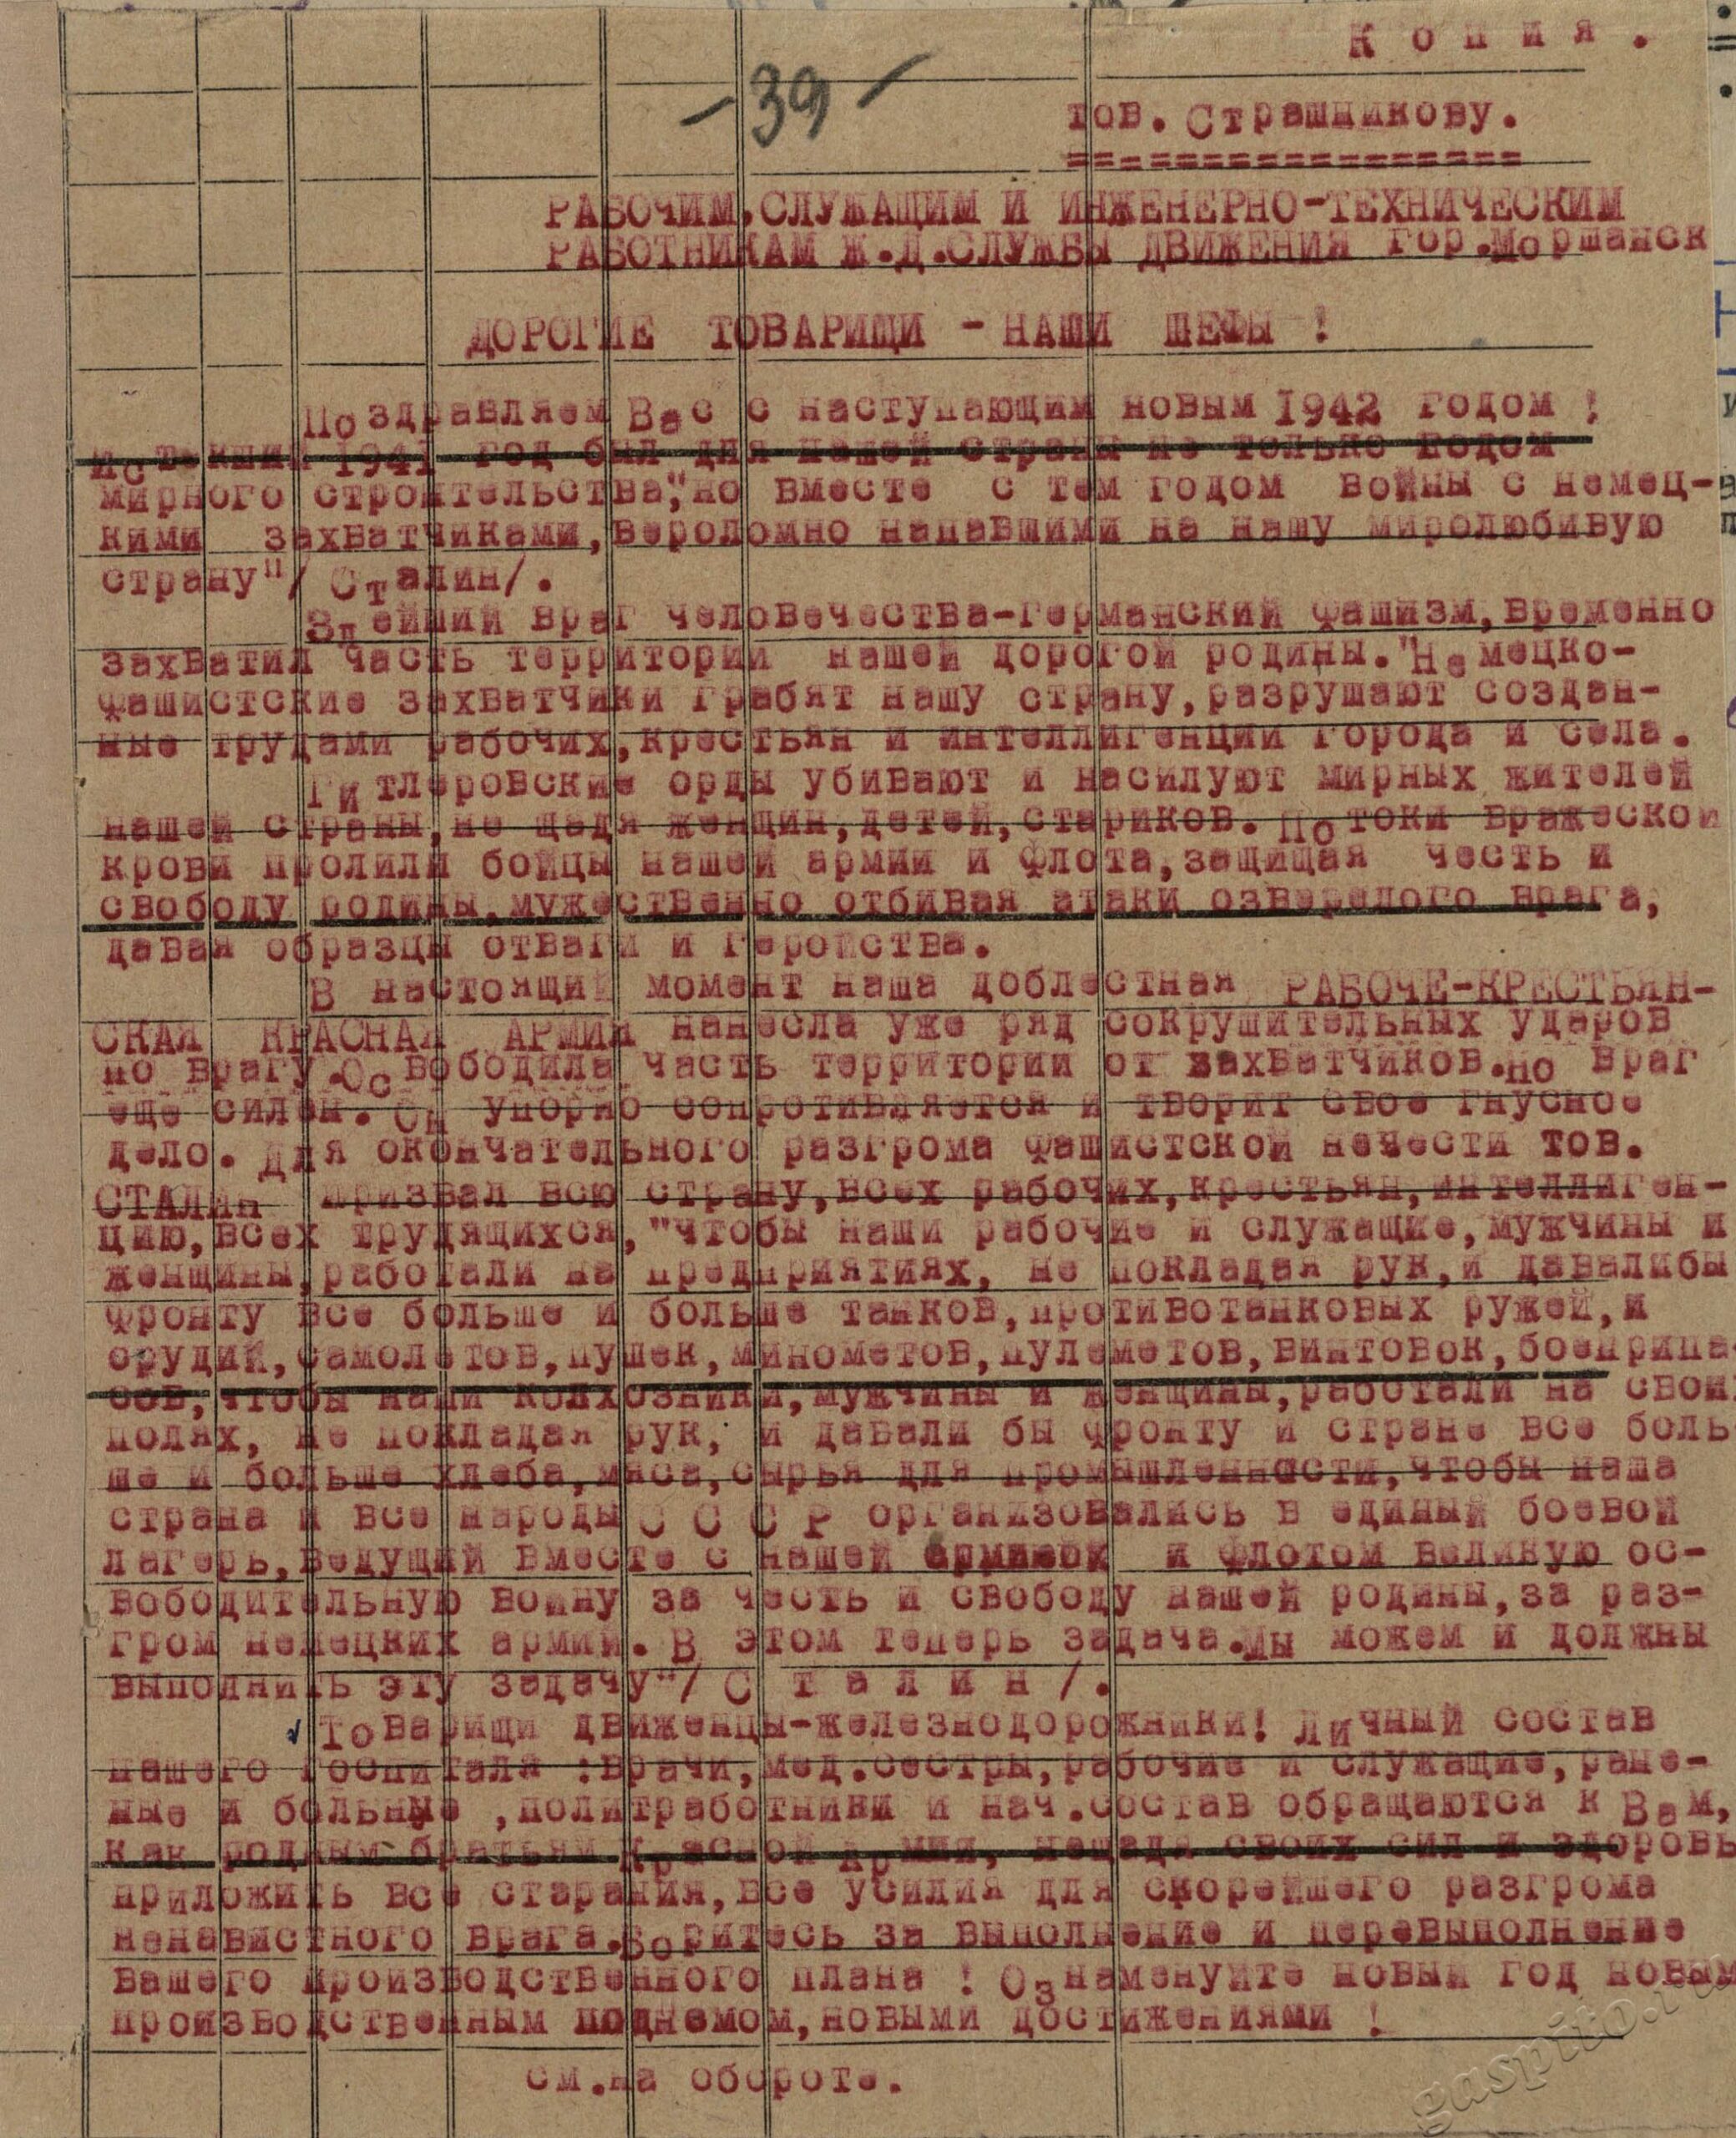 К о п и я .
- 39 -
тов. Страшникову.
=================
РАБОЧИМ,СЛУЖАЩИМ И ИНЖЕНЕРНО-ТЕХНИЧЕСКИМ
РАБОТНИКАМ Ж.Д.СЛУЖБЫ ДВИЖЕНИЯ гор.Моршанск
ДОРОГИЕ ТОВАРИЩИ - НАШИ ШЕФЫ !
Поздравляем Вас с наступающим новым 1942 годом !
Истекший 1941 год был для нашей страны не только годом
мирного строительства", но вместе с тем годом войны с немец-
кими захватчиками,вероломно напавшими на нашу миролюбивую
страну"/ Сталин/.
Злейший враг человечества-германский фашизм,временно
захватил часть территории нашей дорогой родины."Немецко-
фашистские захватчики грабят нашу страну,разрушают создан-
ные трудами рабочих,крестьян и интеллигенции города и села.
Гитлеровские орды убивают и насилуют мирных жителей
нашей страны,не щадя женщин,детей,стариков. Потоки вражеской
крови пролили бойцы нашей армии и флота,защищая честь и
свободу родины,мужественно отбивая атаки озверелого врага,
давая образцы отваги и геройства.
В настоящий момент наша доблестная РАБОЧЕ-КРЕСТЬЯН-
СКАЯ КРАСНАЯ АРМИЯ нанесла уже ряд сокрушительных ударов
по врагу.Освободила часть территории от захватчиков.Но враг
еще силен. Он упорно сопротивляется и творит свое гнусное
дело. Для окончательного разгрома фашистской нечести тов.
СТАЛИн призвал всю страну,всех рабочих,крестьян,интеллиген-
цию,всех трудящихся,"чтобы наши рабочие и служащие,мужчины и
женщины,работали на предприятиях, не покладая рук,и давалибы
фронту все больше и больше танков,противотанковых ружей,и
орудий,самолетов,пушек,минометов,пулеметов,винтовок,боеприпа-
сов,чтобы наши колхозники,мужчины и женщины,работали на свои
полях, не покладая рук, и давали бы фронту и стране все боль
ше и больше хлеба,мяса,сырья для промышленности,чтобы наша
страна и все народы С С С Р организовались в единый боевой
лагерь,ведущий вместе с нашей армиеой и флотом великую ос-
вободительную войну за честь и свободу нашей родины,за раз-
гром немецких армий. В этом теперь задача.Мы можем и должны
выполнить эту задачу"/ С т а л и н /.
Товарищи движенцы-железнодорожники! Личный состав
нашего госпиталя :врачи,мед.сестры,рабочие и служащие,ране-
ные и больные ,политработники и нач.состав обращаются к Вам,
как родным братьям Красной Армии, нещадя своих сил и здоровь
приложить все старания,все усилия для скорейшего разгрома
ненавистного врага.Боритесь за выполнение и перевыполнение
вашего производственного плана ! Ознаменуйте новый год новым
производственным поднемом,новыми достижениями !
см.на обороте.
gaspito.ru